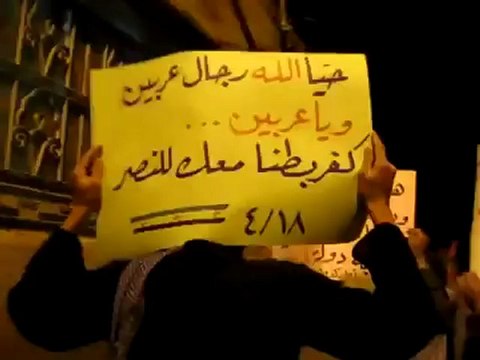 حيّا الله رجال عربين
ويا عربين ...
كفربطنا معك للنصر
٤/١٨
دولة